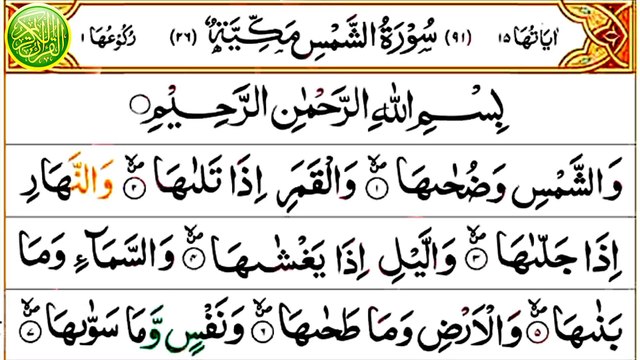 القرآن الكريم
اٰيَاتُهَا ١٥ (٩١) سُوْرَةُ الشَّمْسِ مَكِّيَّةٌ (٢٦) رُكُوْعُهَا ١
بِسْمِ اللّٰهِ الرَّحْمٰنِ الرَّحِيْمِ
وَالشَّمْسِ وَضُحٰىهَا ۙ‏﴿۱﴾ وَالْقَمَرِ اِذَا تَلٰىهَا ۙ‏﴿۲﴾ وَالنَّهَارِ
اِذَا جَلّٰىهَا ۙ‏﴿۳﴾ وَالَّيْلِ اِذَا يَغْشٰىهَا ۙ‏﴿۴﴾ وَالسَّمَآءِ وَمَا
بَنٰىهَا ۙ‏﴿۵﴾ وَالْاَرْضِ وَمَا طَحٰىهَا ۙ‏﴿۶﴾ وَنَفْسٍ وَّمَا سَوّٰىهَا ۙ‏﴿۷﴾